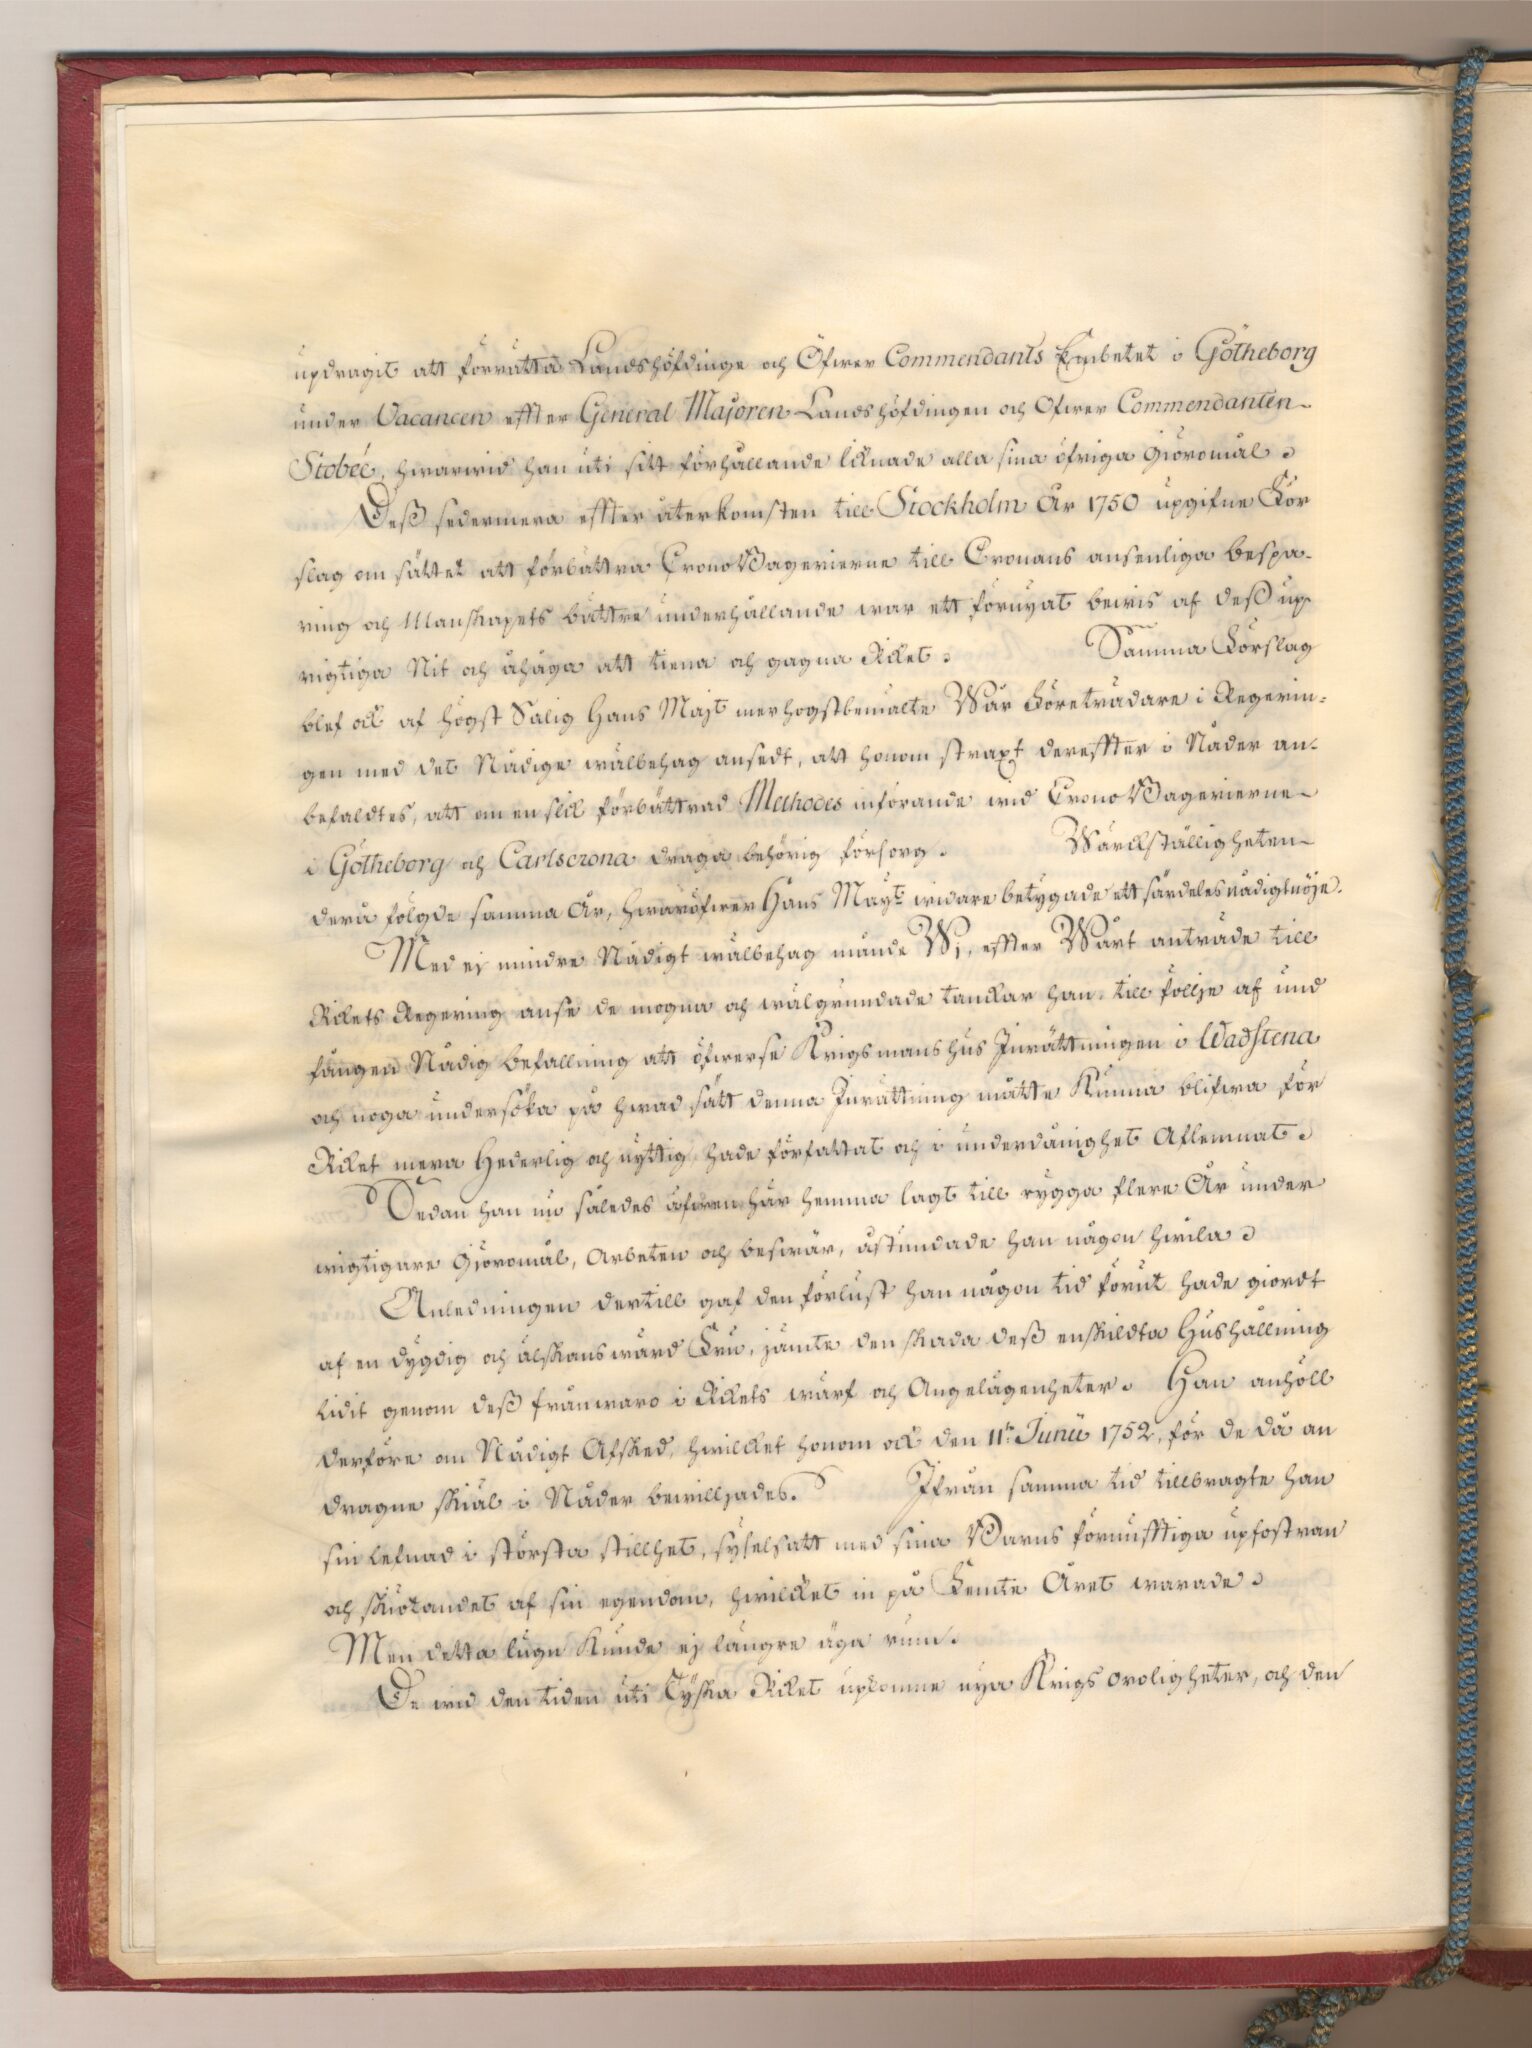 updragit att förrätta Landshöfdinge och Öfwer Commendants Embetet i Götheborg
under Vacancen effter General Majoren Landshöfdingen och Öfwer Commendanten
Stobée, hwarwid han uti sitt förhållande liknade alla sina öfriga giöromål.
Deß sedermera effter återkomsten till Stockholm År 1750 upgifne För
slag om sättet att förbättra Crono Bagerierne till Cronans ansenliga bespa-
ring och Manskapets bättre underhållande war ett förnyat bewis af deß up
rigtiga Nit och åhåga att tiena och gagna Riket. Samma Förslag
blef ock af högst Salig Hans Majt merhögstbemälte Wår Företrädare i Regerin-
gen med det Nådige wälbehag ansedt, att honom straxt dereffter i Nåder an-
befaldtes, att om en slik förbättrad Methodes införande wid Crono Bagerierne
i Götheborg och Carlscrona draga behörig försorg. Wärckställigheten
derå fölgde samma År, hwaröfwer Hans Mayt widare betygade ett särdeles nådigt nöje.
Med ej mindre Nådigt wälbehag månde Wi, effter Wårt anträde till
Rikets Regering anse de mogna och wälgrundade tanckar han, till föllje af und
fången Nådig befallning att öfwerse Krigsmanshus Inrättningen i Wadstena
och noga undersöka på hwad sätt denna Inrättning måtte kunna blifwa för
Riket mera Hederlig och nyttig, hade författat och i underdånighet aflemnat.
Sedan han nu således äfwen här hemma lagt till rygga flere År under
wigtigare Giöromål, Arbeten och beswär, åstundade han någon hwila.
Anledningen dertill gaf den förlust han någon tid förut hade giordt
af en dygdig och älskanswärd Fru, jämte den skada deß enskildta Hushållning
lidit genom deß frånwaro i Rikets wärf och Angelägenheter. Han anhöll
derföre om Nådigt Afsked, hwilcket honom ock den 11te Junii 1752, för de då an
dragne skiäl i Nåder bewilljades. Ifrån samma tid tillbragte han
sin lefnad i största stillhet, syselsatt med sina Barns förnufftiga upfostran
och skiötandet af sin egendom, hwilcket in på Femte Året warade.
Men detta lugn kunde ej längre äga rum.
De wid den tiden uti Tyska Riket upkomne nya Krigs oroligheter, och den